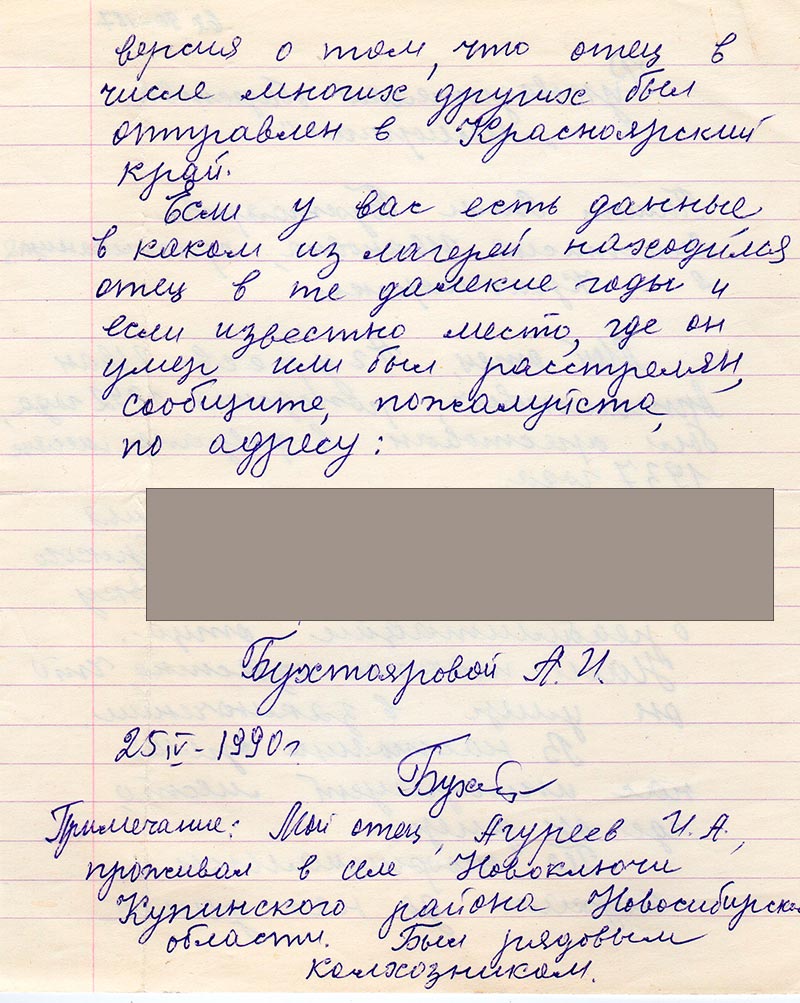 версия о том, что отец в
числе многих других был
отправлен в Красноярский
край.
Если у вас есть данные,
в каком из лагерей находился
отец в те далекие годы и
если известно место, где он
умер или был расстрелян,
сообщите, пожалуйста,
по адресу:
Бухтояровой А.И.
25/IV-1990г.
Примечание: Мой отец, Агуреев И.А.,
проживал в селе Новоключи
Купинского района Новосибирской
области. Был рядовым
колхозником.